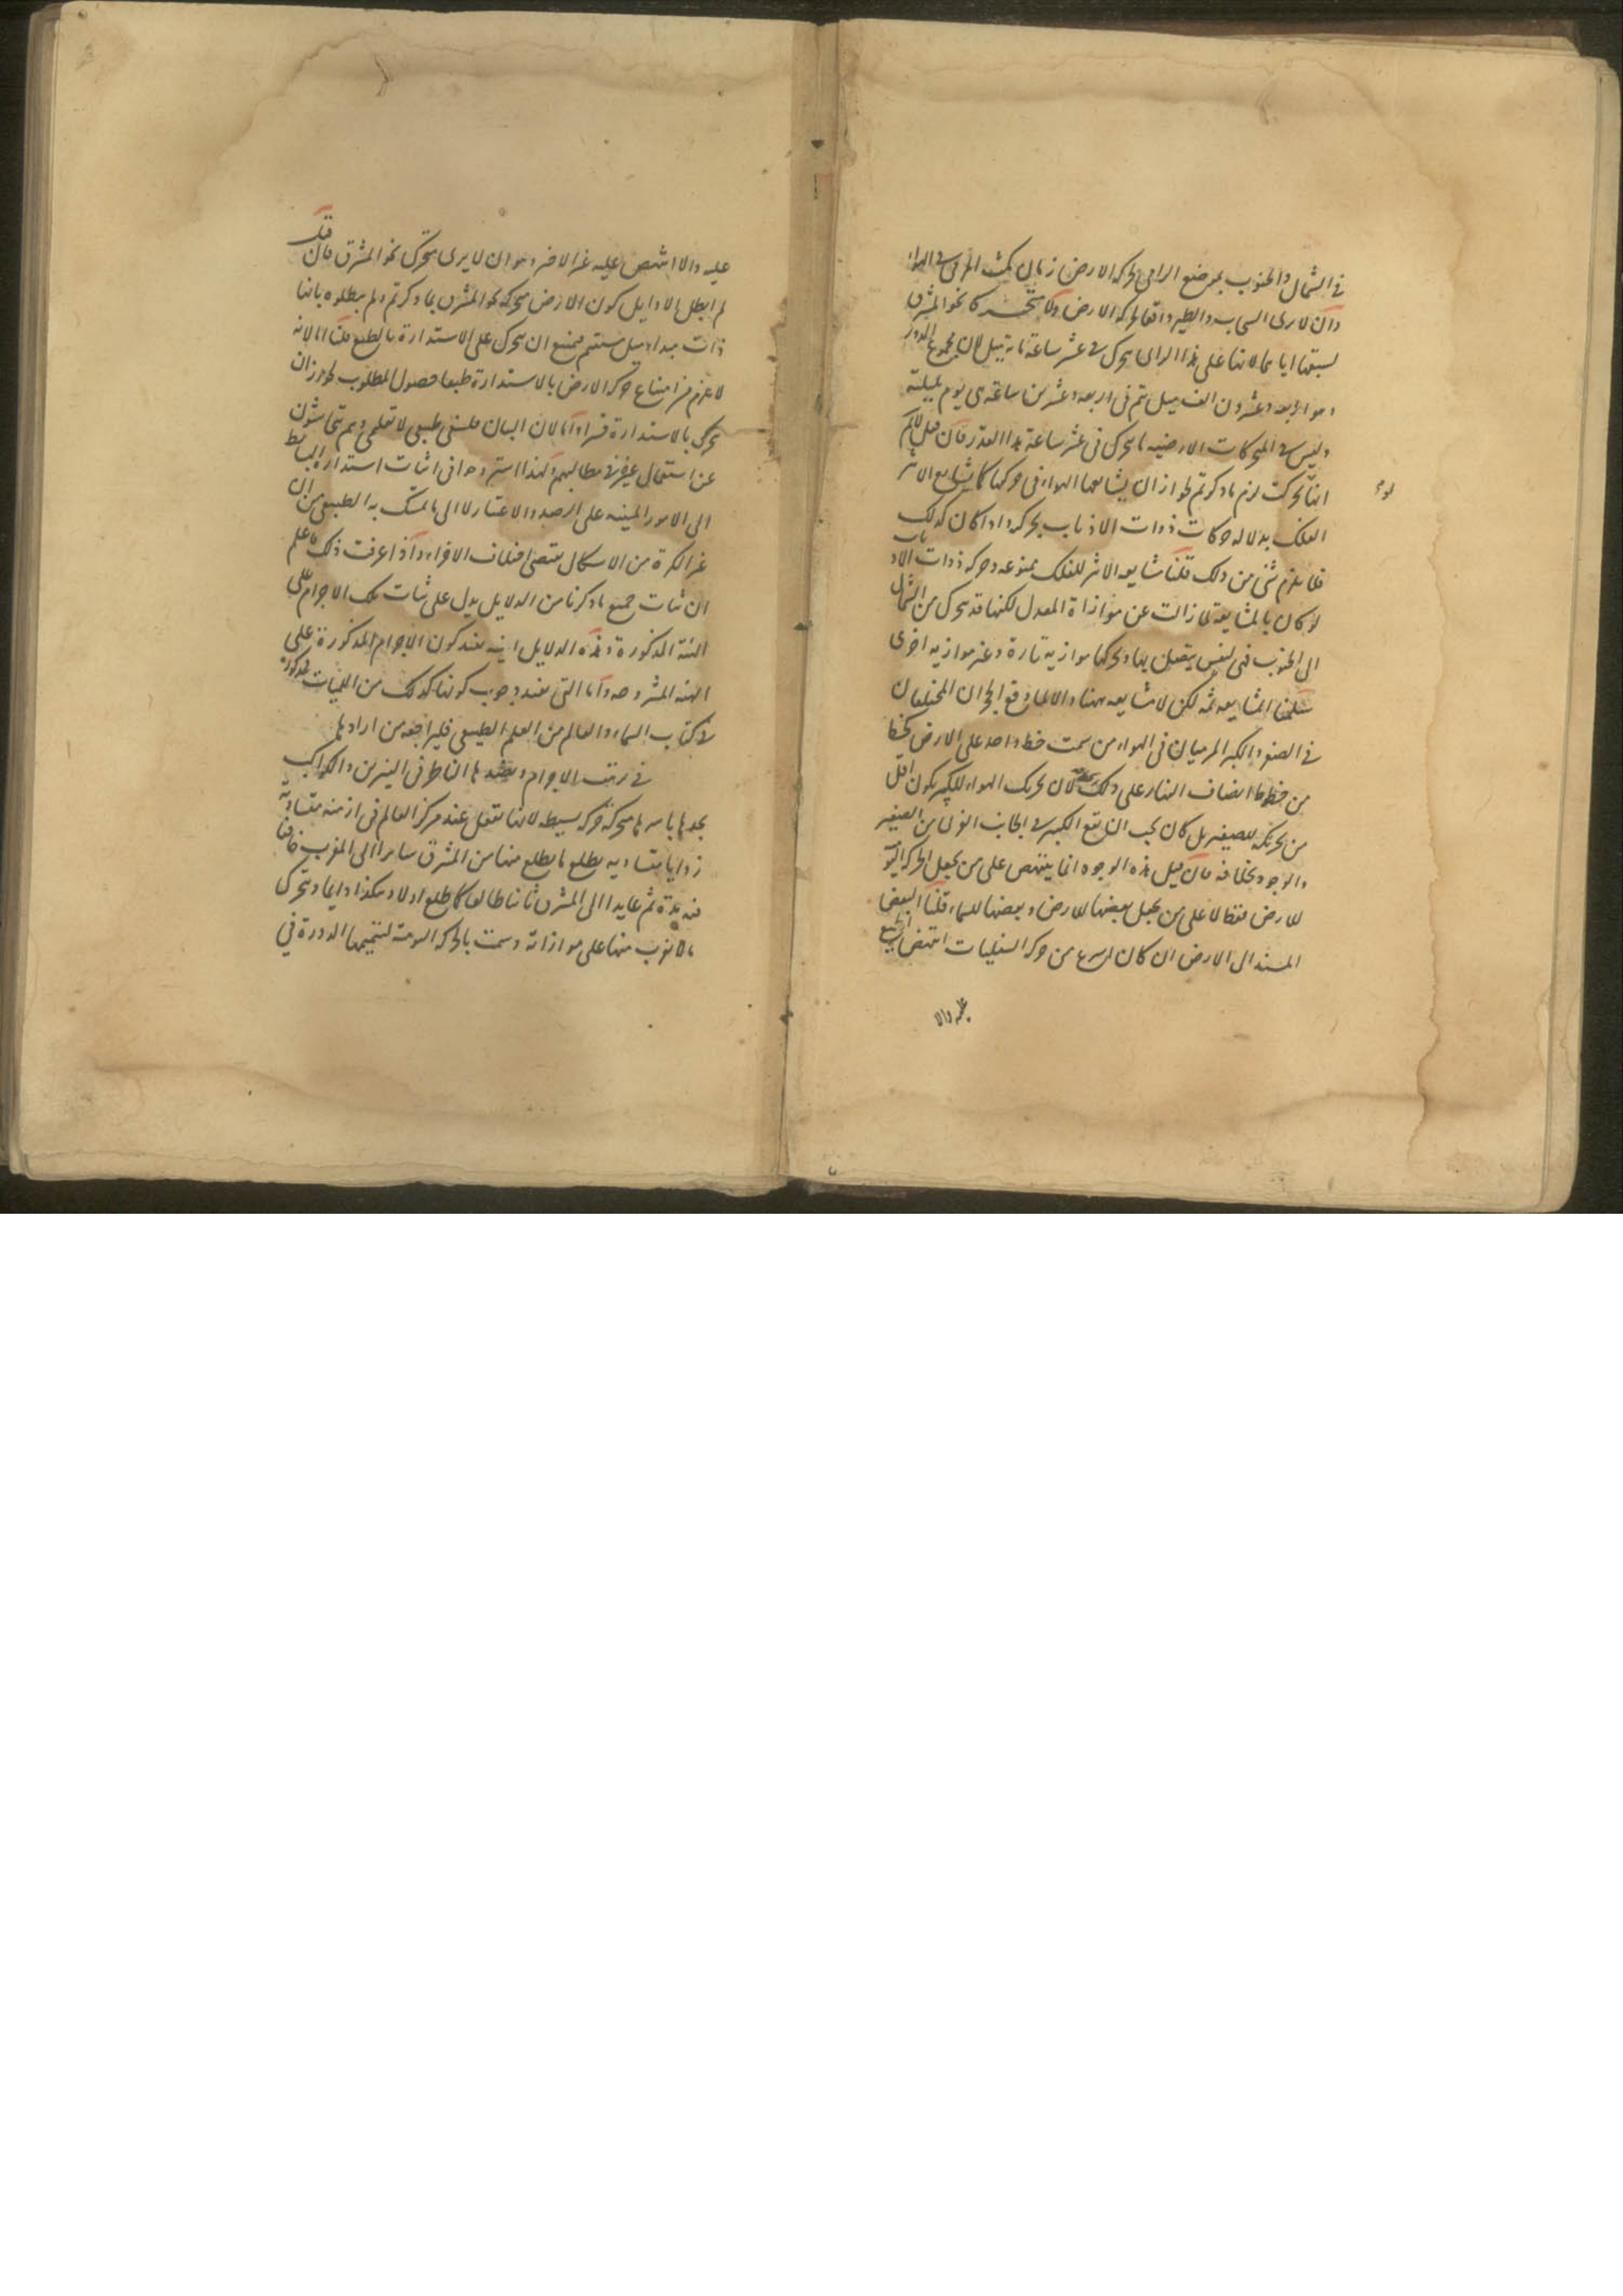 في الشمال والجنوب عن موضع الرامي لحركة الارض زمان مكث المرمي في الهواء
وان لا يرى السحاب والطير واقعا لحركة الارض ولا متحركا نحو المشرق
لسبقها اياهما لانها على هذا الراى يتحرك في عشر ساعة مائة ميل لان مجموع الدور
وهو اربعة وعشرون الف ميل يتم في اربعة وعشرين ساعة هي يوم بليلته
وليس في المتحركات الارضية ما يتحرك في عشر ساعة هذا القدر فان قيل لا نم
انها لو تحركت لزم ما ذكرتم لجواز ان يشايعها الهواء في حركتها كما يشايع الاثير
الفلك بدلالة حركات ذوات الاذناب بحركته واذا كان كذلك
فلا يلزم شئ من ذلك قلنا مشايعة الاثير للفلك ممنوعة وحركة ذوات الاذناب
لو كان بالمشايعة لما زالت عن موازاة المعدل لكنها قد يتحرك من الشمال
الى الجنوب فهي لنفس يتصل بها ويحركها موازية تارة وغير موازية اخرى
سلمنا المشايعة ثمه لكن لا مشايعة ههنا والا لما وقع الحجران المختلفان
في الصغر والكبر المرميان في الهواء من سمت خط واحد على الارض كخط
من خطوط انصاف النهار على ذلك لان تحريك الهواء للكبير يكون اقل
من تحريكه للصغير بل كان يجب ان يقع الكبير في الجانب الغربي من الصغير
والوجود بخلافه فان قيل هذه الوجوه انما ينتهض على من يجعل الحركة اليومية
للارض فقط لا على من يجعل بعضها للارض وبعضها للسماء قلنا البعض
المسند الى الارض ان كان اسرع من حركة السفليات انتهض الجميع
عليه والا
عليه والا انتهض عليه غير الاخير وهو ان لا يرى متحرك نحو المشرق فان قلت
لم ابطل الاوايل كون الارض متحركة نحو المشرق بما ذكرتم ولم يبطلوه بانها
ذات مبدا ميل مستقيم فيمتنع ان يتحرك على الاستدارة بالطبع قلنا اما لانه
لا يلزم من امتناع حركة الارض بالاستدارة طبعا حصول المطلوب لجواز ان
تتحرك بالاستدارة قسرا واما لان البيان فلسفى طبيعى لا تعليمى وهم يتحاشون
عن استعمال غيره في مطالبهم ولهذا استروحوا في اثبات استدارة البسايط
الى الامور المبنية على الرصد والاعتبار لا الى ما تمسك به الطبيعي من ان
غير الكرة من الاشكال يقتضى اختلاف الاجزاء واذا عرفت ذلك فاعلم
ان ثبات جميع ما ذكرنا من الدلايل يدل على ثبات تلك الاجرام على
الهيئة المذكورة وهذه الدلايل انية يفيد كون الاجرام المذكورة على
الهيئة المشروحة واما التي تفيد وجوب كونها كذلك من اللميات فمذكورة
في كتاب السماء والعالم من العلم الطبيعي فليراجعه من ارادها
في ترتيب الاجرام الناظر في النيرين والكواكب
يجدها باسرها متحركة حركة بسيطة لانها تفعل عند مركز العالم في ازمنة متساوية
زوايا متساوية يطلع ما يطلع منها من المشرق سايرا الى المغرب خافيا
فيه مدة ثم عايدا الى المشرق ثانيا طالعا كما طلع اولا وهكذا دايما ويتحرك
ما لا يغرب منها على موازاته وسميت بالحركة اليومية لتتميمها الدورة في